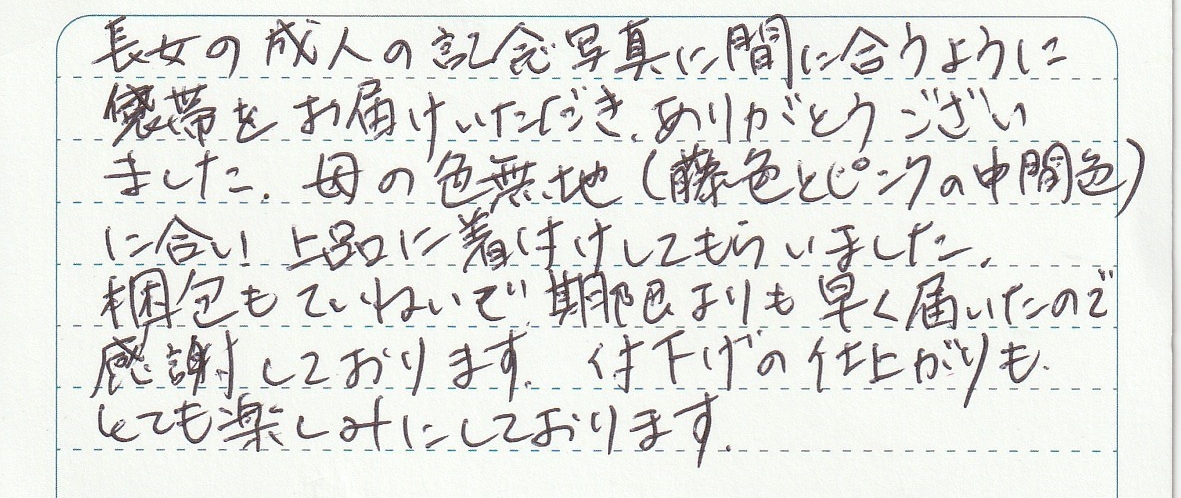 長女の成人の記念写真に間に合うように
袋帯をお届けいただき、ありがとうござい
ました。母の色無地(藤色とピンクの中間色)
に合い上品に着付けしてもらいました。
梱包もていねいで期限よりも早く届いたので
感謝しております。付下げの仕上がりも
とても楽しみにしております。